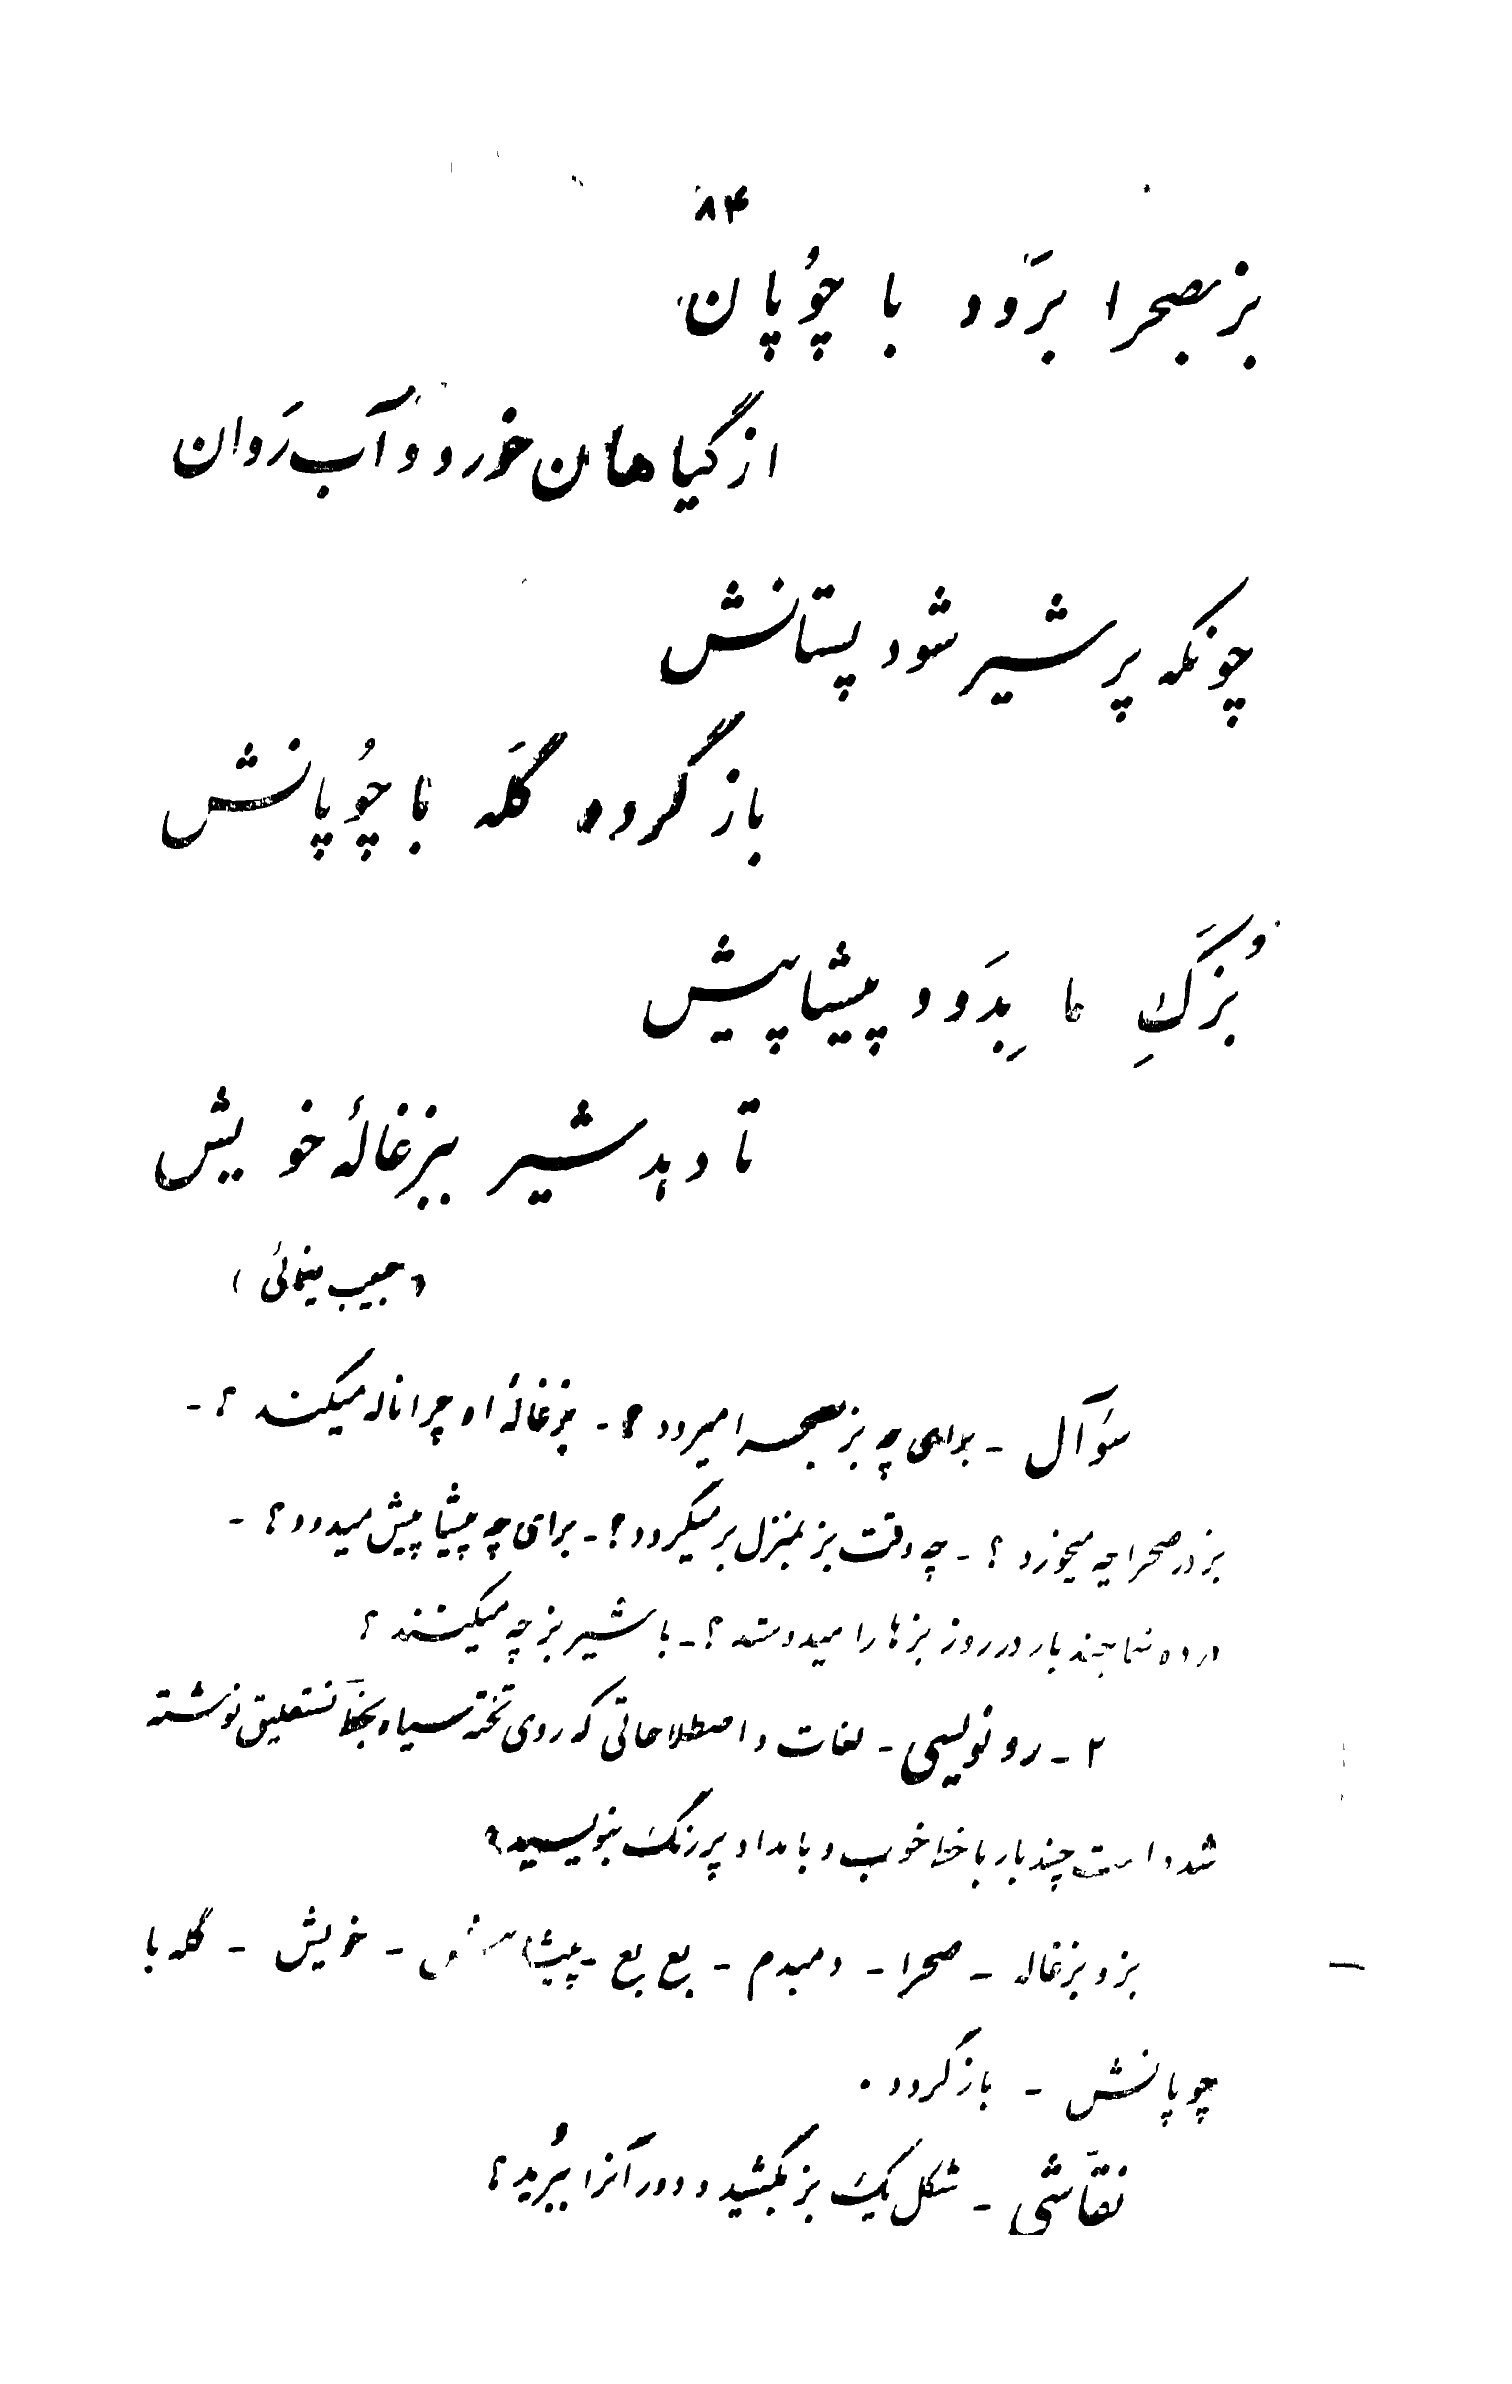 ۸۴
بز بصحرا برَود با چوُپان
از گیاهان خورد و آب رَوان
چونکه پر شیر شود پستانش
باز گردد گلَه با چوُپانش
بُزَکِ ما بِدَود پیشاپیش
تا دهد شیر ببزغالهٔ خویش
(حبیب یغمائی)
سؤآل - برای چه بز بصحرا میرود؟ - بزغالهٔ او چرا ناله میکند؟ -
بز در صحرا چه میخورد؟ - چه وقت بز بمنزل بر میگردد؟ - برای چه پیشاپیش میدود؟ -
در ده شما چند بار در روز بزها را میدوشند؟ - با شیر بز چه میکنند؟
۲ - رونویسی - لغات و اصطلاحاتی که روی تخته سیاه بخطّ نستعلیق نوشته
شده است چند بار با خط خوب و با مداد پر رنگ بنویسید؟
بز و بزغاله - صحرا - دمبدم - بع بع - پیشاپیش - خویش - گله با
چوپانش - باز گردد.
نقّاشی - شکل یک بز بکشید و دور آنرا ببُرید؟